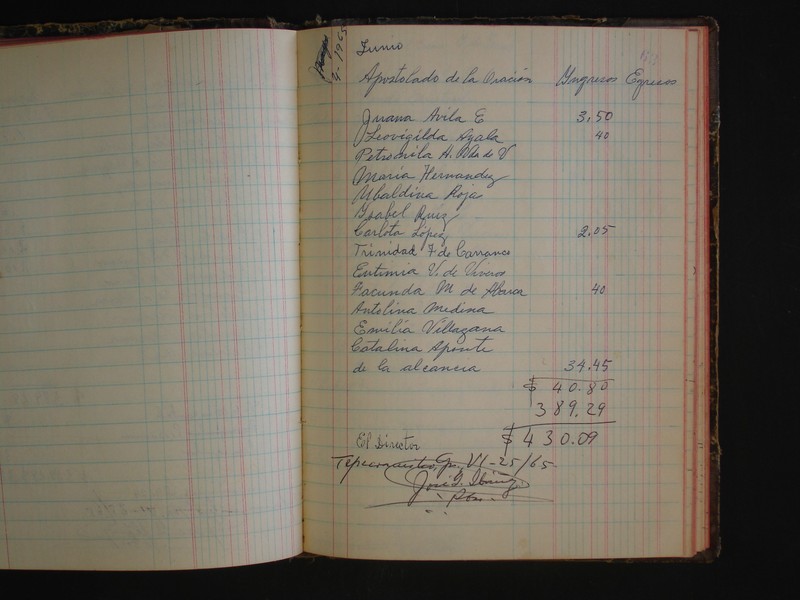 4-1965
Junio
Apostolado de la Oración Yngresos Egresos
Juana Avila E 3.50
Leovigilda Ayala 40
Petronila H. Vda de V
María Hernandez
Ubaldina Rojas
Ysabel Ruiz
Carlota López 2.05
Trinidad F de Carranco
Eutimia V. de Viveros
Facunda M de Abarca 40
Antolina Medina
Emilia Villazana
Catalina Aponte
de la alcancia 34.45
$ 40.80
389.29
$ 430.09
El Director
Tepecoacuilco, Gro. VI-25/65.
José I. Ibáñez
Pbro.